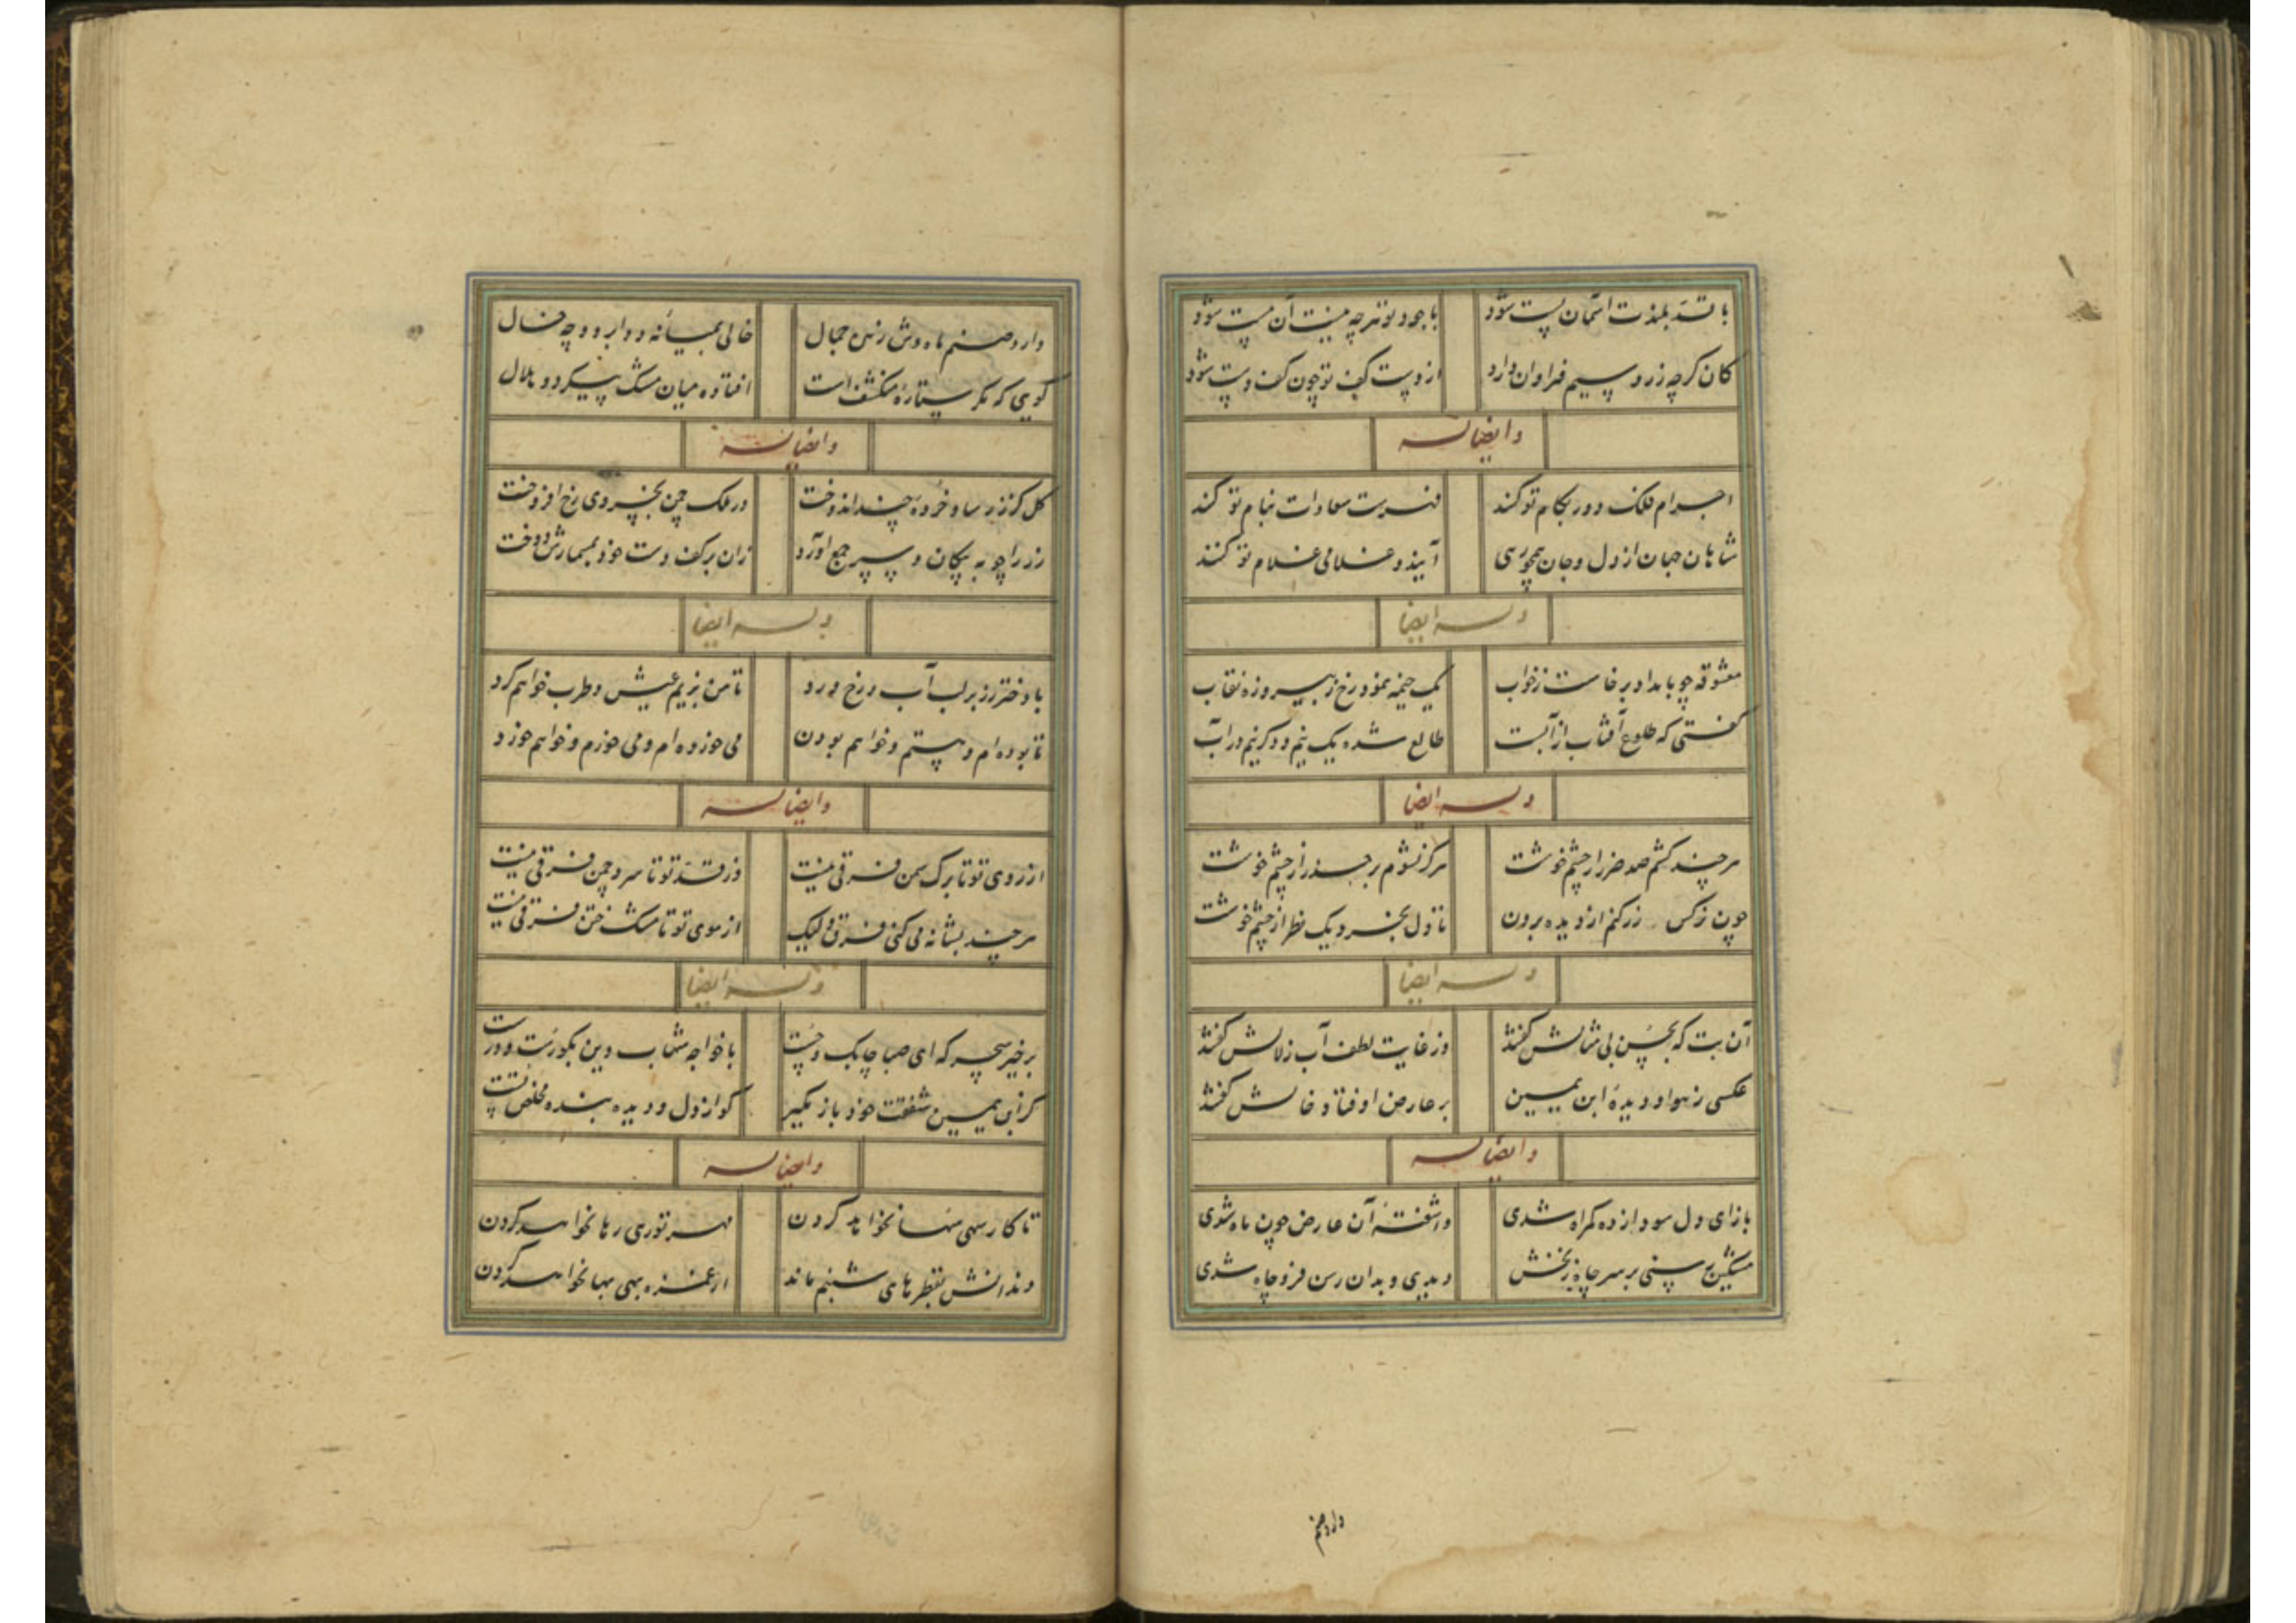 با قد بلندت آسمان پست شود
با جود تو هرچه نیست آن هست شود
کان گرچه زر و سیم فراوان دارد
از دست کف تو چون کف دست شود
وایضا له
اجرام فلک دور بکام تو کنند
فهرست سعادات بنام تو کنند
شاهان جهان از دل و جان همچو رهی
آیند و غلامی غلام تو کنند
وله ایضا
معشوقه چو بامداد برخاست ز خواب
یک نیمه نمود رخ ز پیروزه نقاب
گفتی که طلوع آفتاب از آبست
طالع شده یک نیم و دگر نیم در آب
وله ایضا
هرچند کشم صد ضرر از چشم خوشت
هرگز نشوم بر حذر از چشم خوشت
چون نرگس زر کنم از دیده برون
تا دل بخرد یک نظر از چشم خوشت
وله ایضا
آن بت که بحسن بی مثالش گفتند
وز غایت لطف آب زلالش گفتند
عکسی ز سواد دیدهٔ ابن یمین
بر عارض او فتاد خالش گفتند
وایضا له
باز ای دل سودازده گمراه شدی
واشفتهٔ آن عارض چون ماه شدی
مشکین رسنی بر سر چاه زنخش
دیدی و بدان رسن فرو چاه شدی
دارد صنم
دارد صنم ماه وش زهره جمال
خالی بمیانهٔ دو ابرو و چه خال
گویی که مگر ستارهٔ منکشف است
افتاده میان مشک پیکر دو هلال
وایضا له
گل کز زر ساو خردهٔ چند اندوخت
در ملک چمن بخسروی رخ افروخت
زر را چو به پیکان و سپر جمع آورد
زان بر کف دست خود بمسمارش دوخت
وله ایضا
با دختر رز بر لب آب و رخ ورد
تا من بزیم عیش و طرب خواهم کرد
تا بوده‌ام و هستم و خواهم بودن
می خورده‌ام و می خورم و خواهم خورد
وایضا له
از روی تو تا برگ سمن فرقی نیست
وز قد تو تا سرو چمن فرقی نیست
هرچند بشانه می کنی فرق ولیک
از موی تو تا مشک ختن فرقی نیست
وله ایضا
برخیز سحر که ای صبا چابک و چست
با خواجه شهاب دین بگو راست و درست
کز ابن یمین شفقت خود باز مگیر
کو از دل و دیده بنده مخلص تست
وایضا له
تا کار سهی سها نخواهد کردن
مهر تو رهی رها نخواهد کردن
دندانش بقطرهای شبنم ماند